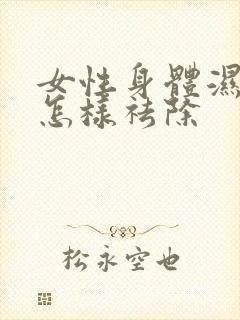 女性身體濕
怎樣祛除
松永空也